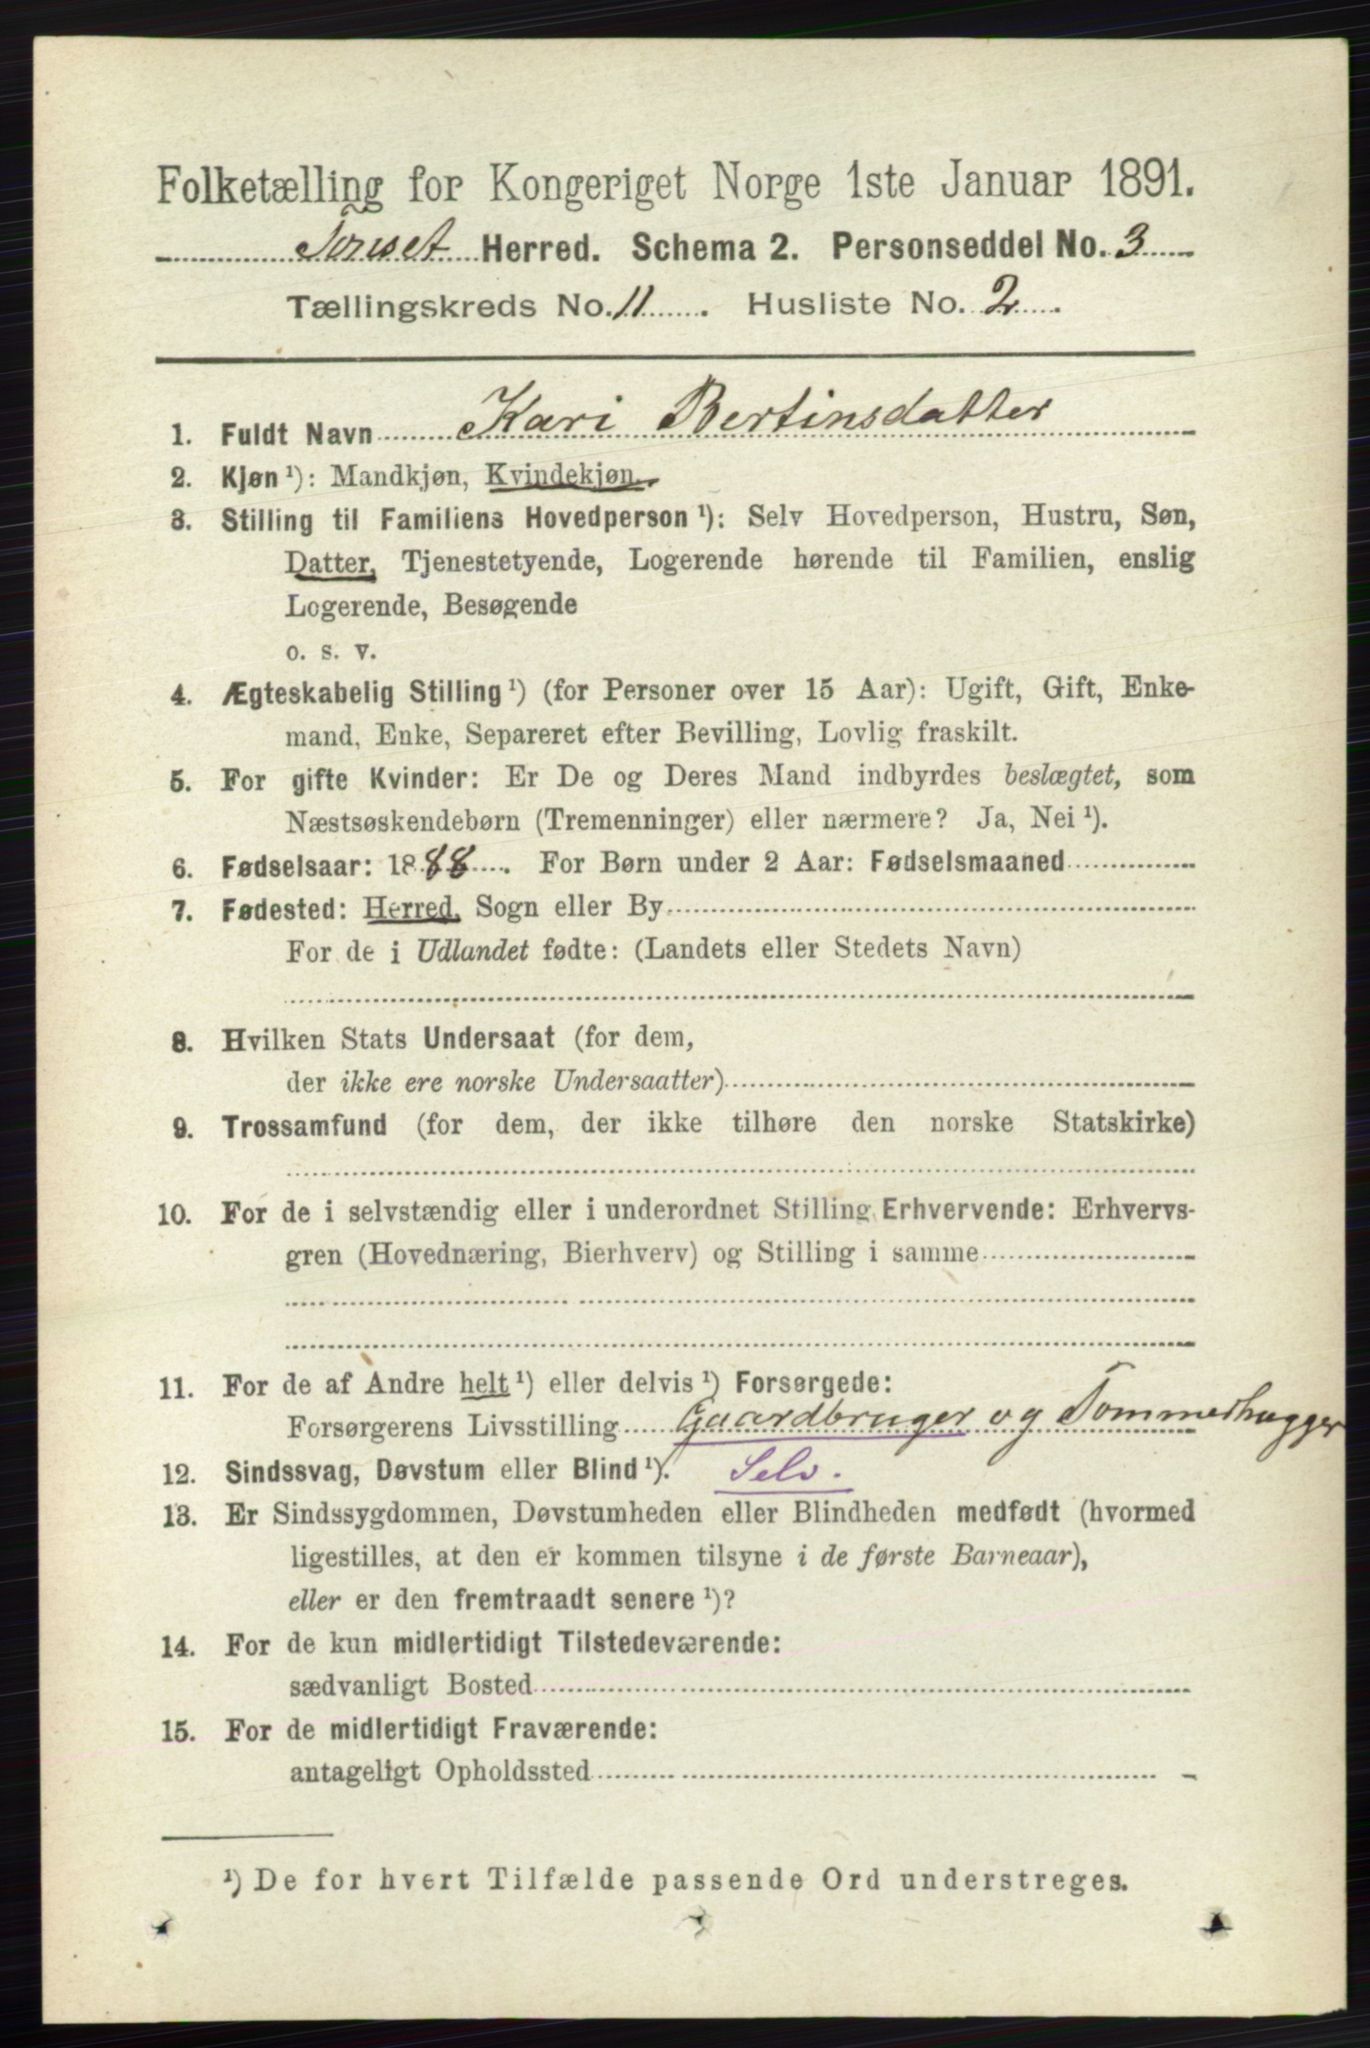 Folketælling for Kongeriget Norge 1ste Januar 1891.
Tønset Herred. Schema 2. Personseddel No. 3
Tællingskreds No. 11. Husliste No. 2.
1. Fuldt Navn Kari Bertinsdatter
2. Kjøn ¹): Mandkjøn, Kvindekjøn.
3. Stilling til Familiens Hovedperson ¹): Selv Hovedperson, Hustru, Søn,
Datter, Tjenestetyende, Logerende hørende til Familien, enslig
Logerende, Besøgende
o. s. v.
4. Ægteskabelig Stilling ¹) (for Personer over 15 Aar): Ugift, Gift, Enke-
mand, Enke, Separeret efter Bevilling, Lovlig fraskilt.
5. For gifte Kvinder: Er De og Deres Mand indbyrdes beslægtet, som
Næstsøskendebørn (Tremenninger) eller nærmere? Ja, Nei ¹).
6. Fødselsaar: 1888. For Børn under 2 Aar: Fødselsmaaned
7. Fødested: Herred, Sogn eller By
For de i Udlandet fødte: (Landets eller Stedets Navn)
8. Hvilken Stats Undersaat (for dem,
der ikke ere norske Undersaatter)
9. Trossamfund (for dem, der ikke tilhøre den norske Statskirke)
10. For de i selvstændig eller i underordnet Stilling Erhvervende: Erhvervs-
gren (Hovednæring, Bierhverv) og Stilling i samme
11. For de af Andre helt ¹) eller delvis ¹) Forsørgede:
Forsørgerens Livsstilling Gaardbruger og Tommerhugger
12. Sindssvag, Døvstum eller Blind ¹). Selv.
13. Er Sindssygdommen, Døvstumheden eller Blindheden medfødt (hvormed
ligestilles, at den er kommen tilsyne i de første Barneaar),
eller er den fremtraadt senere ¹)?
14. For de kun midlertidigt Tilstedeværende:
sædvanligt Bosted
15. For de midlertidigt Fraværende:
antageligt Opholdssted
¹) De for hvert Tilfælde passende Ord understreges.